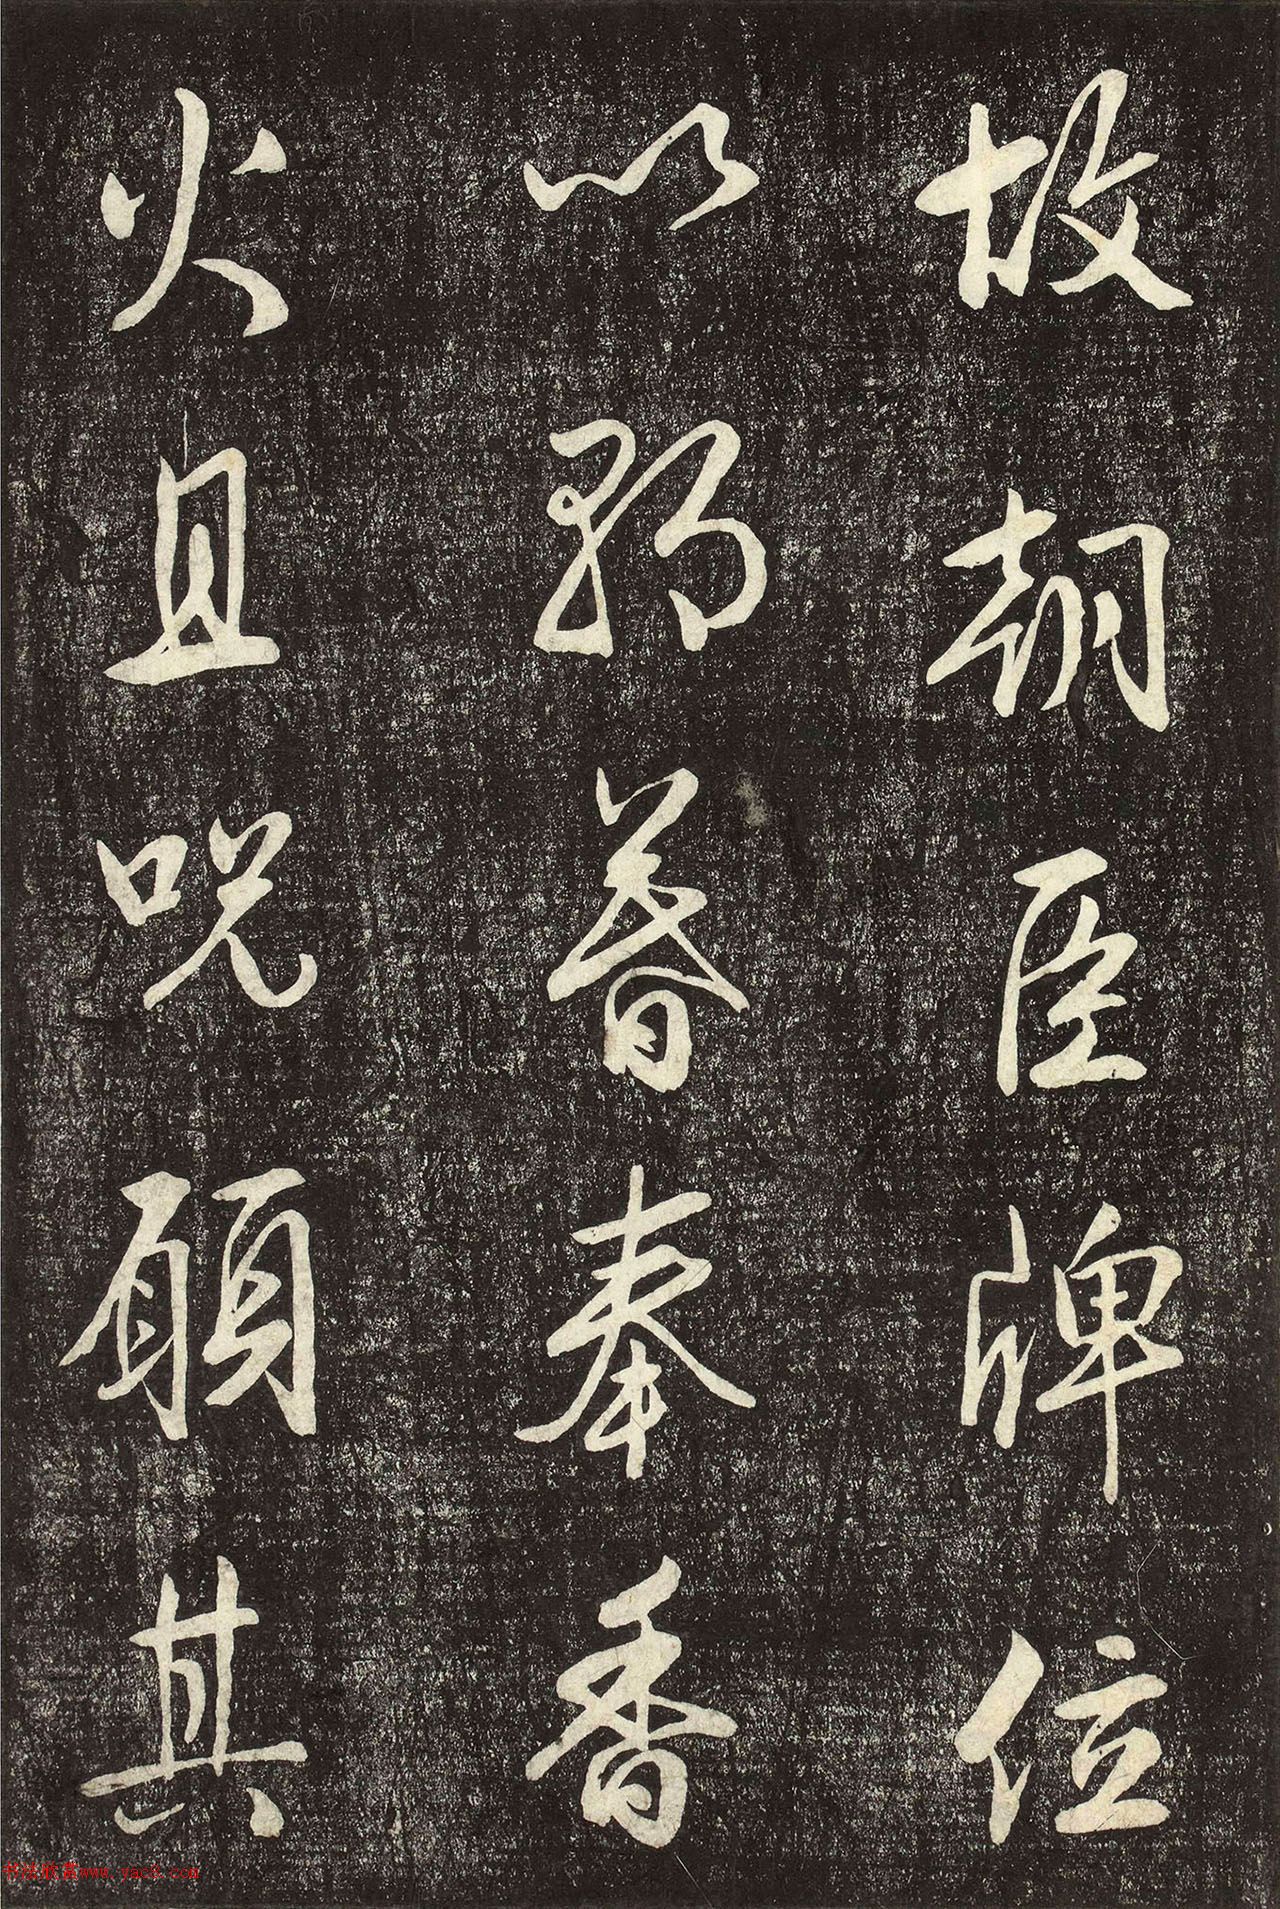 故朝臣牌位
以暮奉香
火且呪願其
书法欣赏www.yac8.com